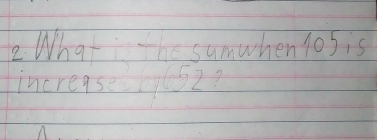 2. What is the sum when 105 is
increased by 652?